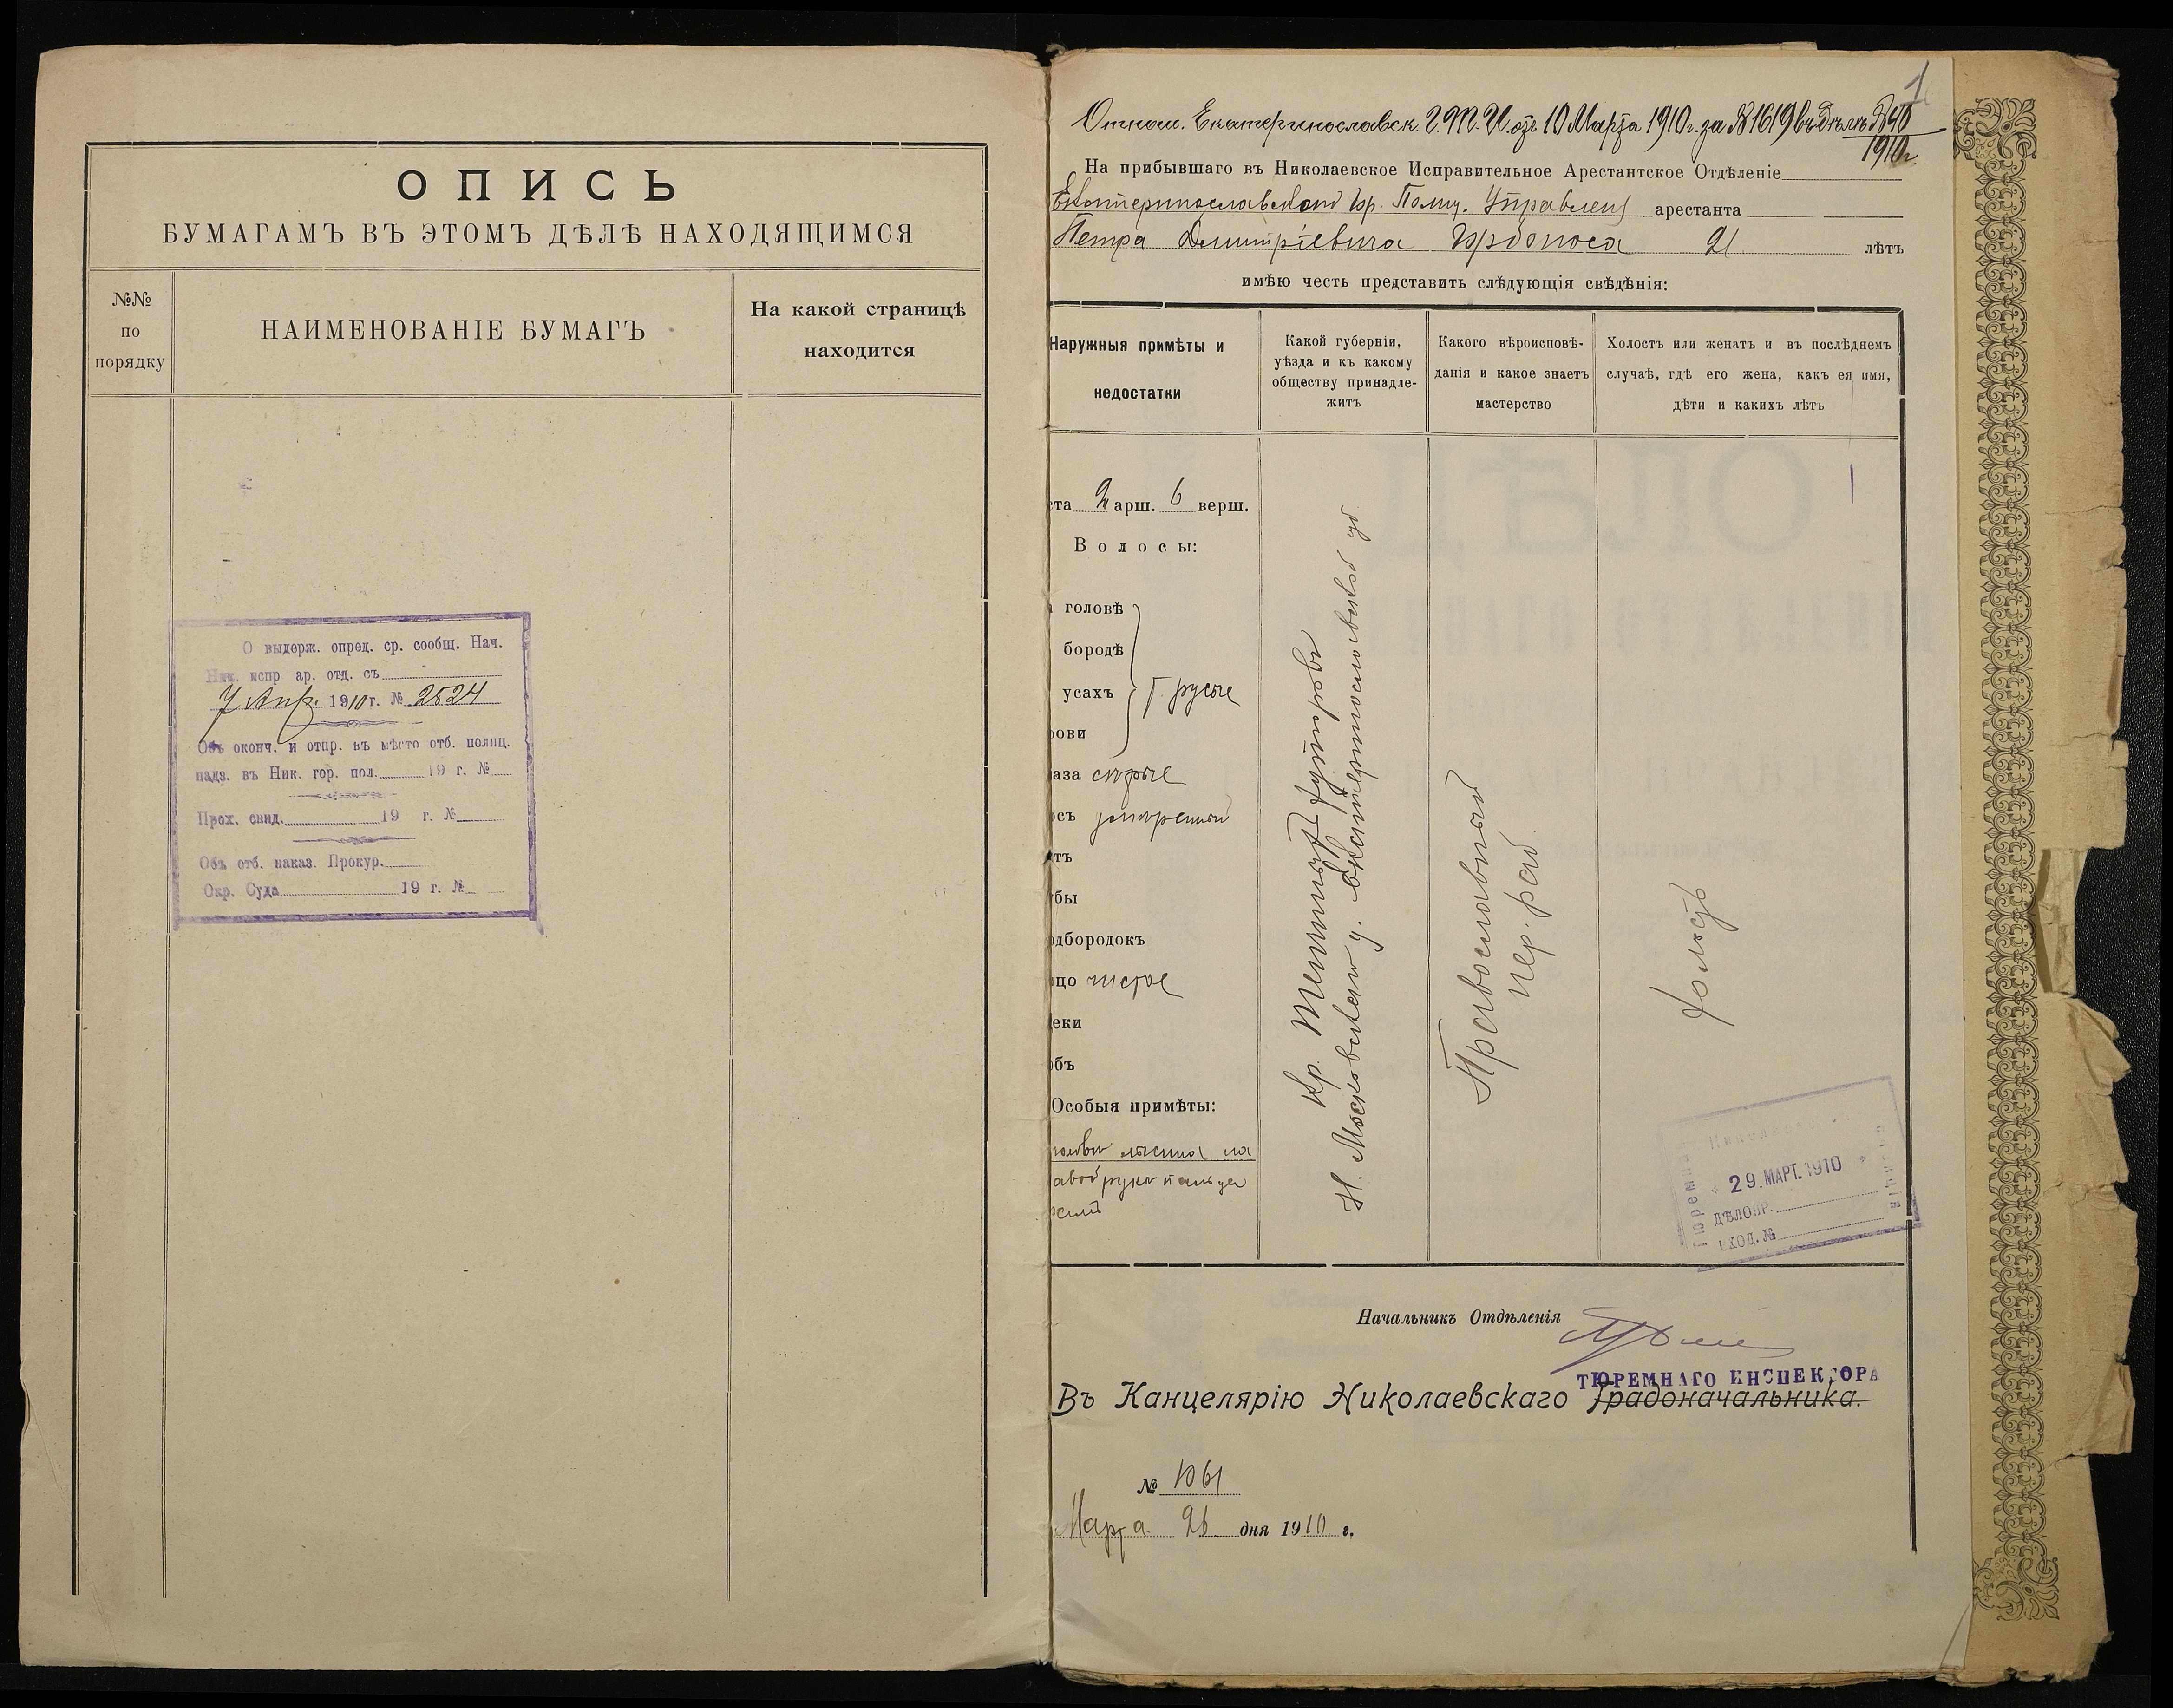 ОПИСЬ
БУМАГАМЪ ВЪ ЭТОМЪ ДѢЛѢ НАХОДЯЩИМСЯ
№№
по
порядку
НАИМЕНОВАНІЕ БУМАГЪ
На какой страницѣ
находится
О выдерж. опред. ср. сообщ. Нач.
Ник. испр ар. отд. съ
7 Апр. 1910 г. № 2524
Объ оконч. и отпр. въ мѣсто отб. полиц.
надз. въ Ник. гор. пол. 19 г. №
Прох. свид. 19 г. №
Объ отб. наказ. Прокур.
Окр. Суда 19 г. №
1
Отнош. Екатеринославск. Г.Т.И. отъ 10 Марта 1910 г. за № 1619 въ дѣлѣ № 40
1910 г.
На прибывшаго въ Николаевское Исправительное Арестантское Отдѣленіе
Екатеринославской Гор. Полиц. Управлен арестанта
Петра Димитріевича Горбоноса 21 лѣтъ
имѣю честь представить слѣдующія свѣдѣнія:
Наружныя примѣты и
недостатки
Какой губерніи,
уѣзда и къ какому
обществу принадле-
житъ
Какого вѣроисповѣ-
данія и какое знаетъ
мастерство
Холостъ или женатъ и въ послѣднемъ
случаѣ, гдѣ его жена, какъ ея имя,
дѣти и какихъ лѣтъ
ста 2 арш. 6 верш.
Волосы:
головѣ
бородѣ
усахъ Т. русые
рови
аза сѣрые
осъ
тъ
бы
дбородокъ
цо чистое
еки
объ
Особыя примѣты:
лысина на
руки пальца
Кр.
Н. Московскаго у. Екатеринославской губ.
Православный
чер. раб.
Холостъ
29. МАРТ. 1910
ДѢЛОПР.
ВХОД. №
Начальникъ Отдѣленія
ТЮРЕМНАГО ИНСПЕКТОРА
Въ Канцелярію Николаевскаго Градоначальника.
№ 1061
Марта 26 дня 1910 г.